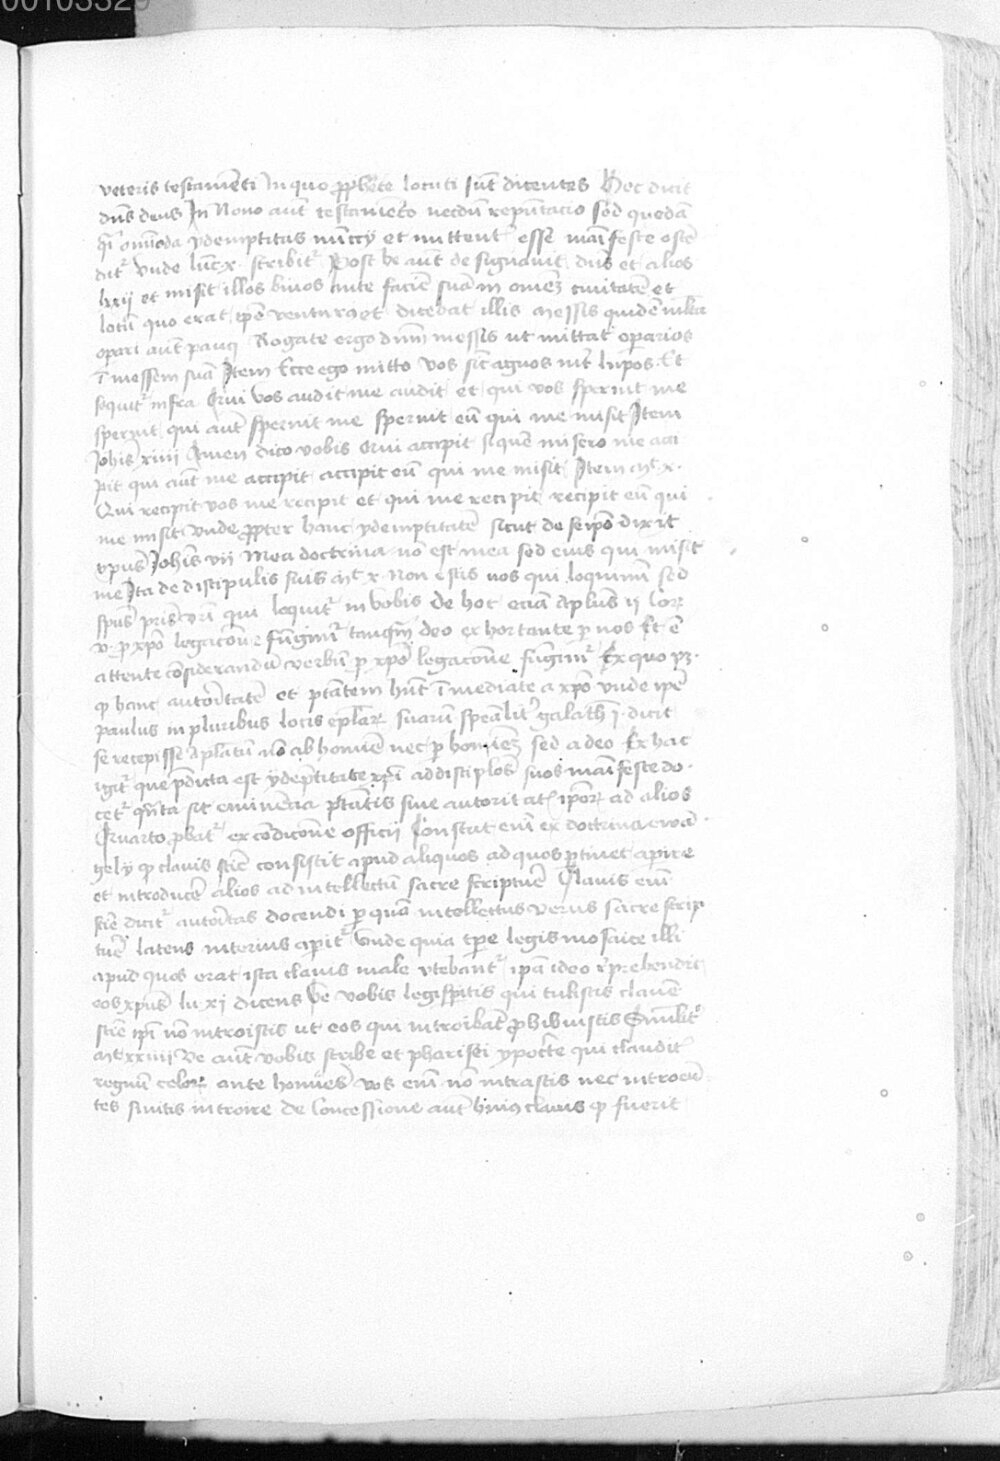 00103329
veteris testamēti In quo ꝓphete locuti sūt dicentes Hec dicit
dn̄s deus In Nouo aut̄ testamēto necdū reputacio sed quedā
q̄i omīoda ydemptitas nūccij et mittent᷑ esse mai᷑feste ostē
dit᷑ vnde luc̄ x· scribit᷑ Post hc aut̄ designauit dn̄s et alios
lxxij et misit illos binos ante faciē suā in omēȝ ciuitatē et
locū quo erat ip̄e ventur9 et dicebat illis Messis quidē ml̄ta
opari aut̄ pauci Rogate ergo dn̄m messis ut mittat oparios
ī messem suā Itēm Ecce ego mitto vos sic̄ agnos int̄ lupos· Et
sequit᷑ infra Qui vos audit me audit et qui vos spernit me
spernit qui aut̄ spernit me spernit eū qui me misit Item
Joh̄is xiiii Amen dico vobis Qui accipit si quē misero me acci
pit qui aut̄ me accipit accipit eū qui me misit Item mt̄ x·
Qui recipit vos me recipit et qui me recipit recipit eū qui
me misit vnde ꝓpter hanc ydemptitatē sicut de seip̄o dixit
xpus̄ Joh̄is vii Mea doctrina nō est mea sed eius qui misit
me Ita de discipulis suis mt̄ x· Non estis uos qui loquimī sed
sp̄us pris̄ vr̄i qui loquit᷑ in vobis de hoc eciā apl̄us ij Cor̄ꝝ
v· ꝓ xp̄o legacōne fūgim᷑ tanq̄m deo exhortante ꝑ nos Et ē
attente cōsiderandū verbū ꝓ xp̄o legacōne fūgim᷑ Ex quo pȝ·
ꝙ hanc autoritatē et ptātem hn̄t īmediate a xp̄o vnde ip̄e
paulus in pluribus locis epl̄arꝝ suarū spēalit᷑ galath̄ i· dicit
se recepisse apl̄atū nō ab homīe nec ꝑ homīeȝ sed a deo Ex hac
igit᷑ que p̄dicta est ydēptitate xpī ad discipl̄os suos mai᷑feste do·
cet᷑ qn̄ta sit eminēcia ptātis siue autoritat᷑ ip̄orꝝ ad alios
Quarto ꝓbat᷑ ex cōdicōne officij Constat em̄ ex doctrina ewā·
gelij ꝙ clauis scīe consistit apud aliquos ad quos ꝑtinet apire
et introducē alios ad intellectū sacre scripturē Clauis em̄
scīe dicit᷑ autoritas docendi ꝑ quā intellectus verus sacre scrip
turē latens interius apit᷑ vnde quia tp̄e legis mosaice illi
apud quos erat ista clauis male vtebant᷑ ip̄a ideo rep̄hendit
eos xpus̄ lu· xj dicens Ve vobis legisp̄itis qui tulistis clauē
scīe ip̄i nō introistis ut eos qui introibāt ꝓhibuistis Simil̄it᷑
mt̄ xxiiii Ve aut̄ vobis scribe et pharisei ypoc̄te qui claudit᷑
regnū celorꝝ ante homīes vos em̄ nō intrastis nec introeū
tes sinitis introire de Concessione aut̄ hui9 clauis ꝙ fuerit